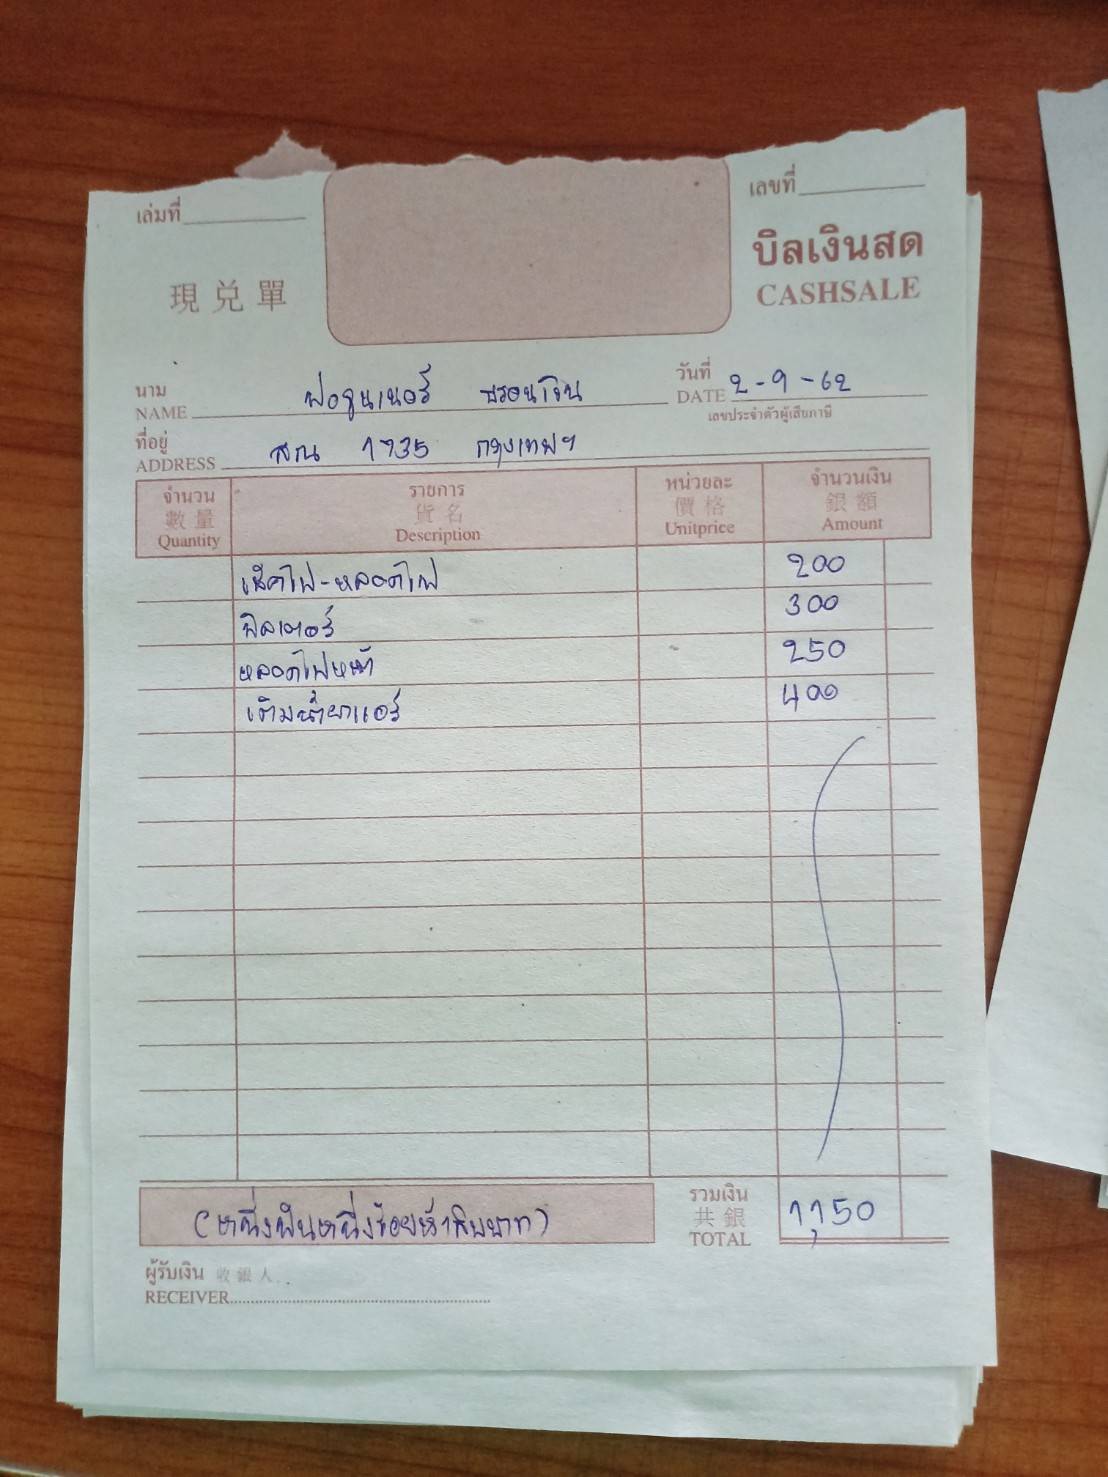 เล่มที่
เลขที่
บิลเงินสด
現兑單
CASHSALE
นาม
NAME ฟอจูนเนอร์ บรอนเงิน
วันที่
DATE 2-9-62
เลขประจำตัวผู้เสียภาษี
ที่อยู่
ADDRESS สณ 1735 กรุงเทพฯ
จำนวน รายการ หน่วยละ จำนวนเงิน
數量 貨名 價格 銀額
Quantity Description Unitprice Amount
เช็คไฟ-หลอดไฟ 200
ฟิลเตอร์ 300
หลอดไฟหน้า 250
เติมน้ำยาแอร์ 400
(หนึ่งพันหนึ่งร้อยห้าสิบบาท)
รวมเงิน
共銀
TOTAL 1,150
ผู้รับเงิน 收銀人
RECEIVER